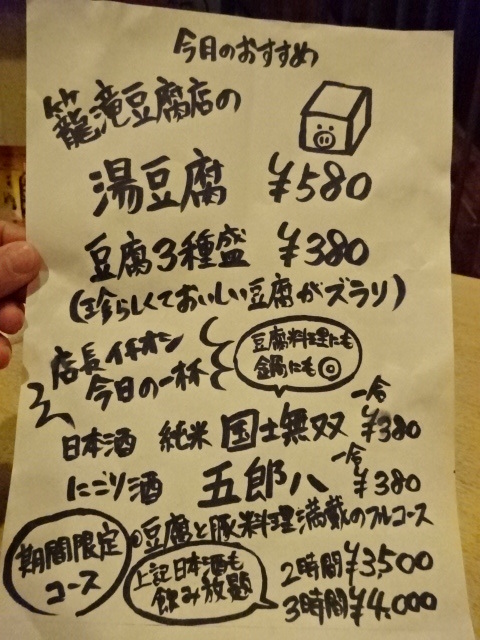 今月のおすすめ
籠滝豆腐店の
湯豆腐 ¥580
豆腐3種盛 ¥380
(珍らしくておいしい豆腐がズラリ)
店長イチオシ
今日の一杯
豆腐料理にも
鍋にも◎
日本酒 純米 国士無双 一合 ¥380
にごり酒 五郎八 一合 ¥380
期間限定
コース
◎豆腐と豚料理満載のフルコース
上記日本酒も
飲み放題
2時間¥3,500
3時間¥4,000